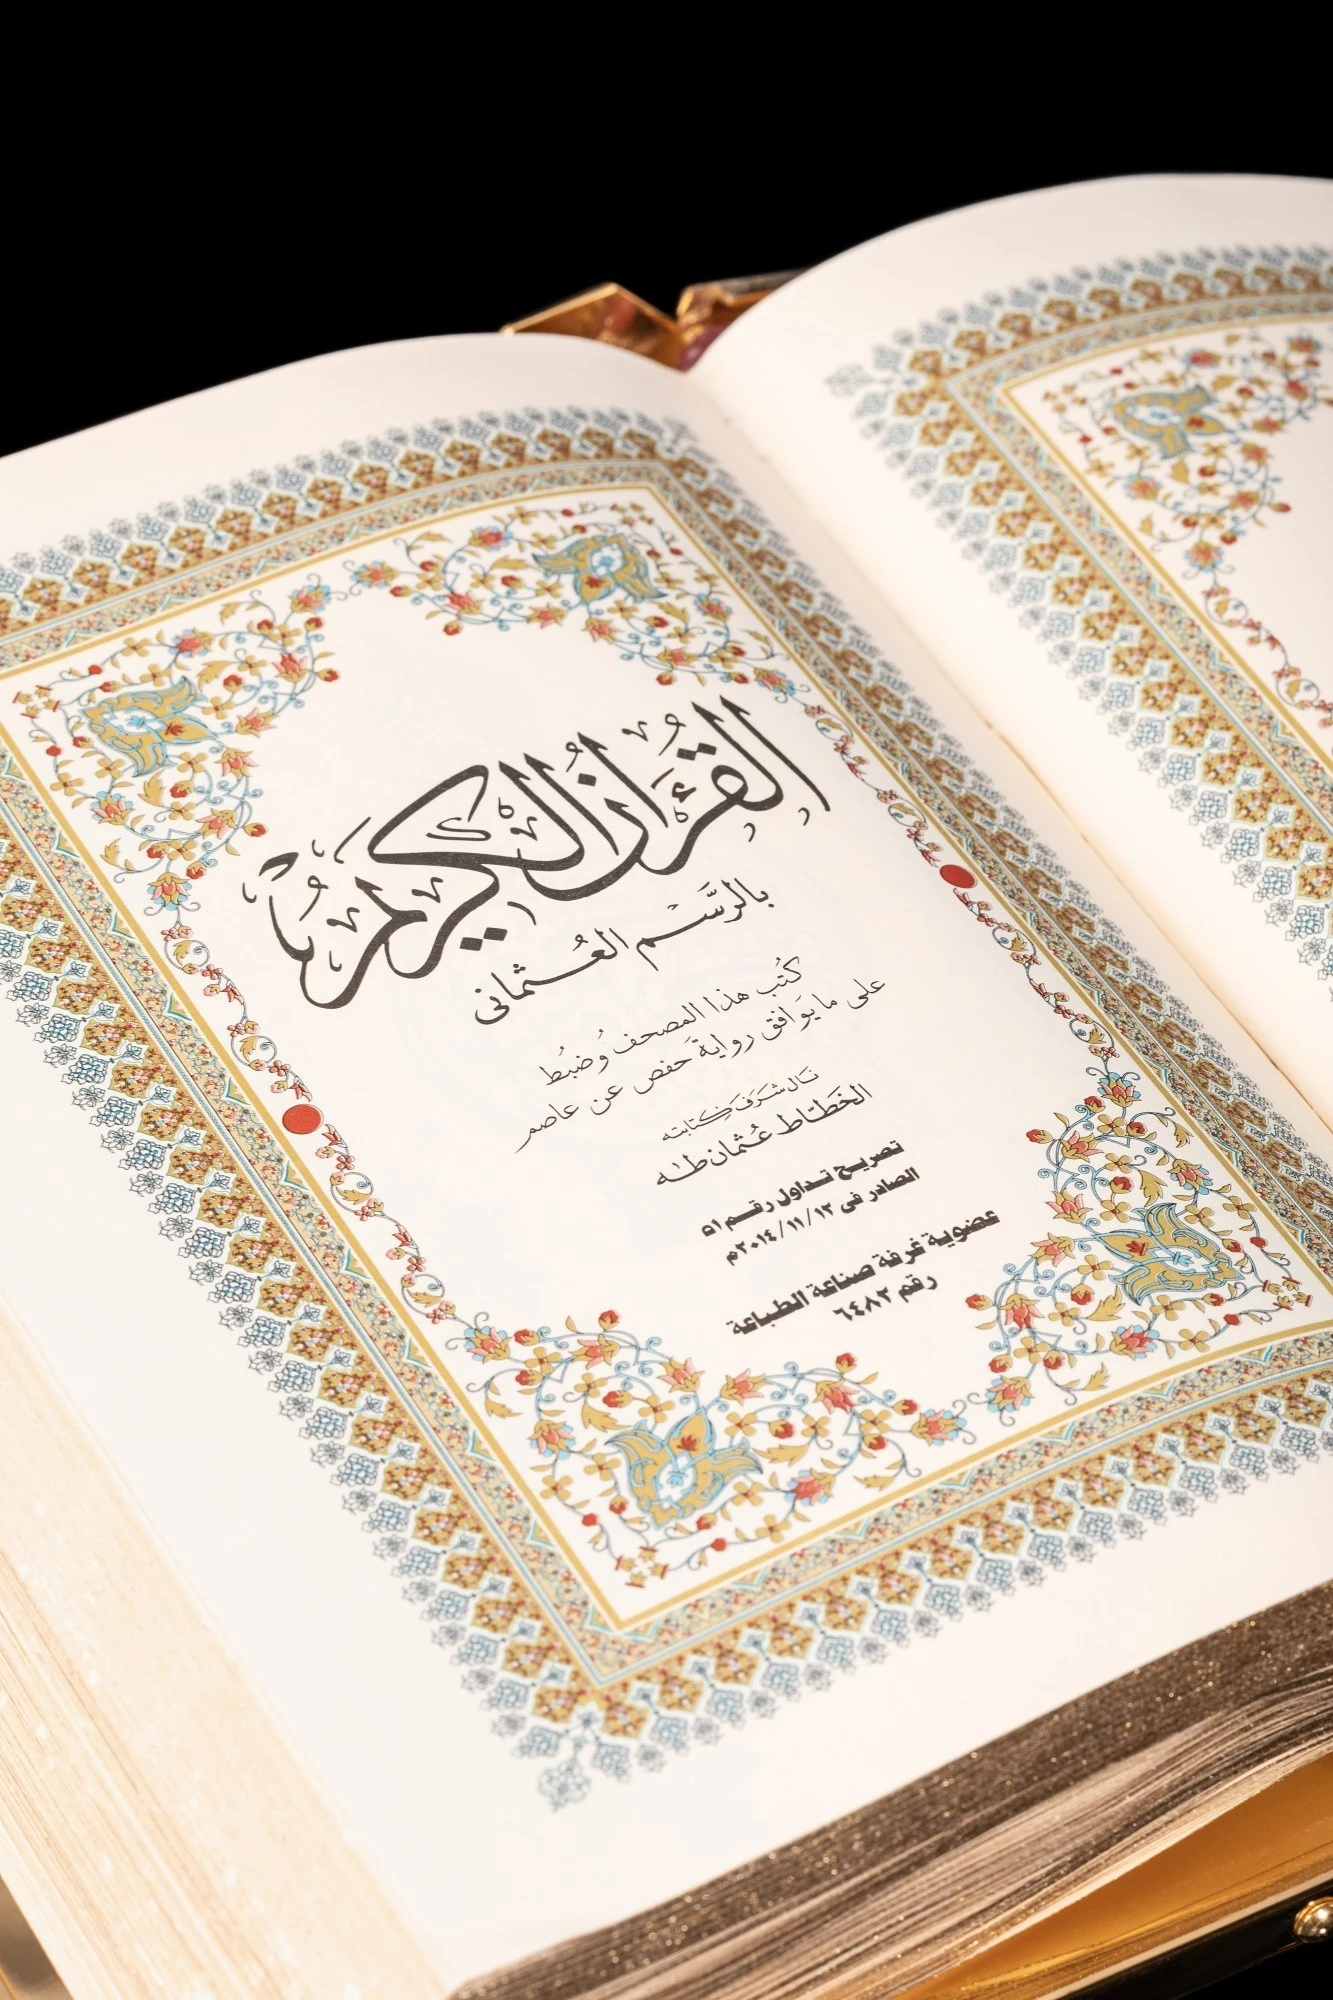 القُرْءَانُ الكَرِيمُ
بالرَّسْمِ العُثمانى
كُتُب هذا المصحف وَضبُط
على ما يوَافق روايةَ حَفص عن عاصم
نَال شَرَفَ كِتابته
الخَطّاط عُثمان طٰه
تصريح تداول رقم ٥١
الصادر فى ٢٠١٤/١١/١٢م
عضوية غرفة صناعة الطباعة
رقم ٦٤٨٢